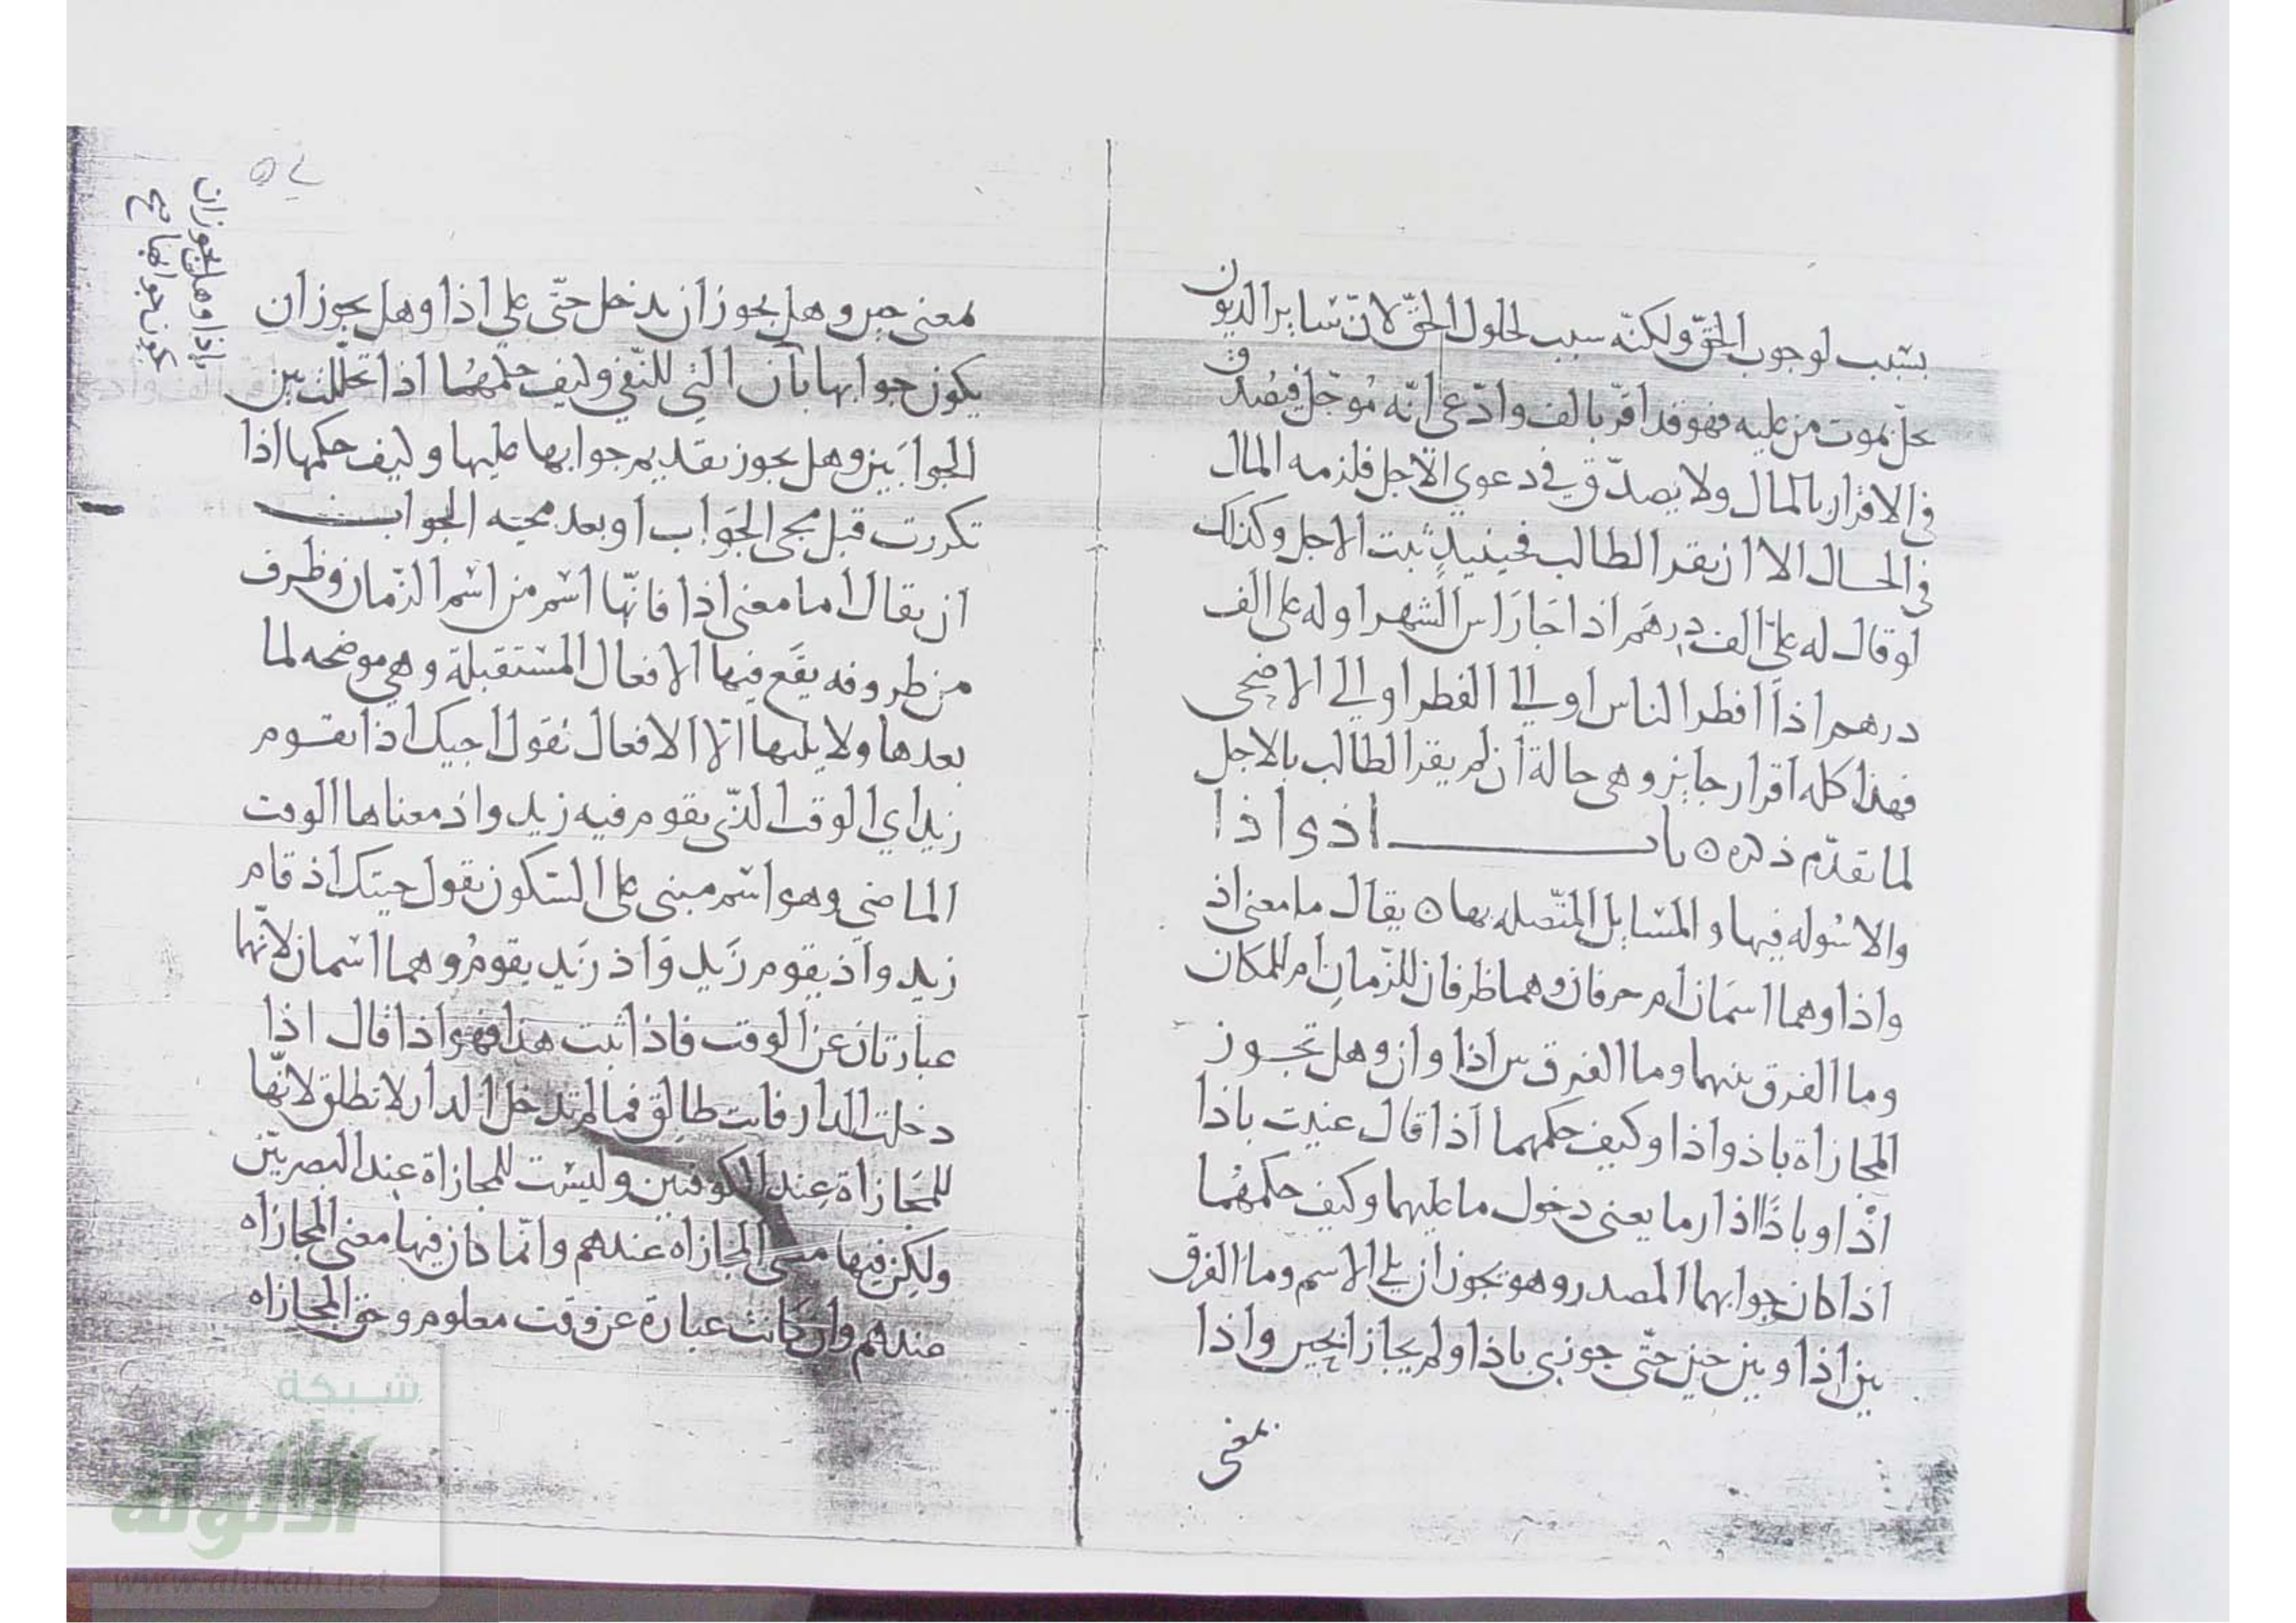 بسبب لوجوب الحقّ ولكنّه سبب لحلول الحقّ لانّ سايرالديون
يحلّ بموت من عليه فهو قد اقرّ بالف وادّعى انّه مُوجّل فيصُدق
في الاقرار بالمال ولا يصدّق في دعوي الاجل فلزمه المال
في الحال الا ان يقر الطالب فحينيذٍ ثبت الاجل وكذلك
لو قال له عليّ الف درهم اذا جا راس الشهر او له علي الف
درهم اذا افطر الناس او الي الفطر او الي الاضحى
فهذا كله اقرار جايز وهى حالة ان لم يقر الطالب بالاجل
لما تقدّم ذكره ٥ باب اذ و اذا
والاسُوله فيها والمسايل المتّصله بها ٥ يقال ما معنى اذ
واذا وهما اسمان ام حرفان وهما ظرفان للزّمان ام للمكان
وما الفرق بينهما وما الفرق بين اذا وان وهل تجوز
المجازاة باذ واذا وكيف حكمهما اذا قال عنيت باذا
اذ او باذ اذا وما يعنى دخول ما عليهما وكيف حكمهُما
اذا كان جوابهما المصدر وهو يجوز ان يلي الاسم وما الفرق
بين اذا وبين حين حتّى جوزى باذا ولم يجاز بحين واذا
بمعنى
معنى حين وهل يجوز ان يدخل حتّى علي اذا وهل يجوز ان
يكون جوابها بان التي للنّفي وكيف حكمهُما اذا تخلّلت بين
الجوابَين وهل يجوز تقديم جوابها عليها وكيف حكمها اذا
تكررت قبل مجى الجَواب او بعد مجيه الجواب
ان يقال اما معنى اذا فانّها اسم من اسم الزّمان وظرف
من ظروفه يقَع فيها الافعال المستقبلة وهي موضحه لما
بعدها ولا يليها الّا الافعال تقول اجيك اذا يقوم
زيد اي الوقت الذي يقوم فيه زيد واذ معناها الوقت
الماضي وهو اسم مبنى على السّكون تقول جيتك اذ قام
زيد واذ يقوم زَيد وَاذ زَيد يقومُ وهما اسمان لانّهما
عبارتان عن الوقت فاذا ثبت هذا فهو اذا قال اذا
دخلت الدار فانت طالق فما لم تدخل الدار لا تطلق لانّها
للمجَازاة عِند الكوفيين وليست للمجازاة عند البصريّين
ولكن فيها معنى المجازاه عندهم وانّما كان فيها معنى المجازاه
عندهم وان كانت عبارة عن وقت معلوم وحق المجازاه
باذا وهل يجوز ان
يكون جوابها